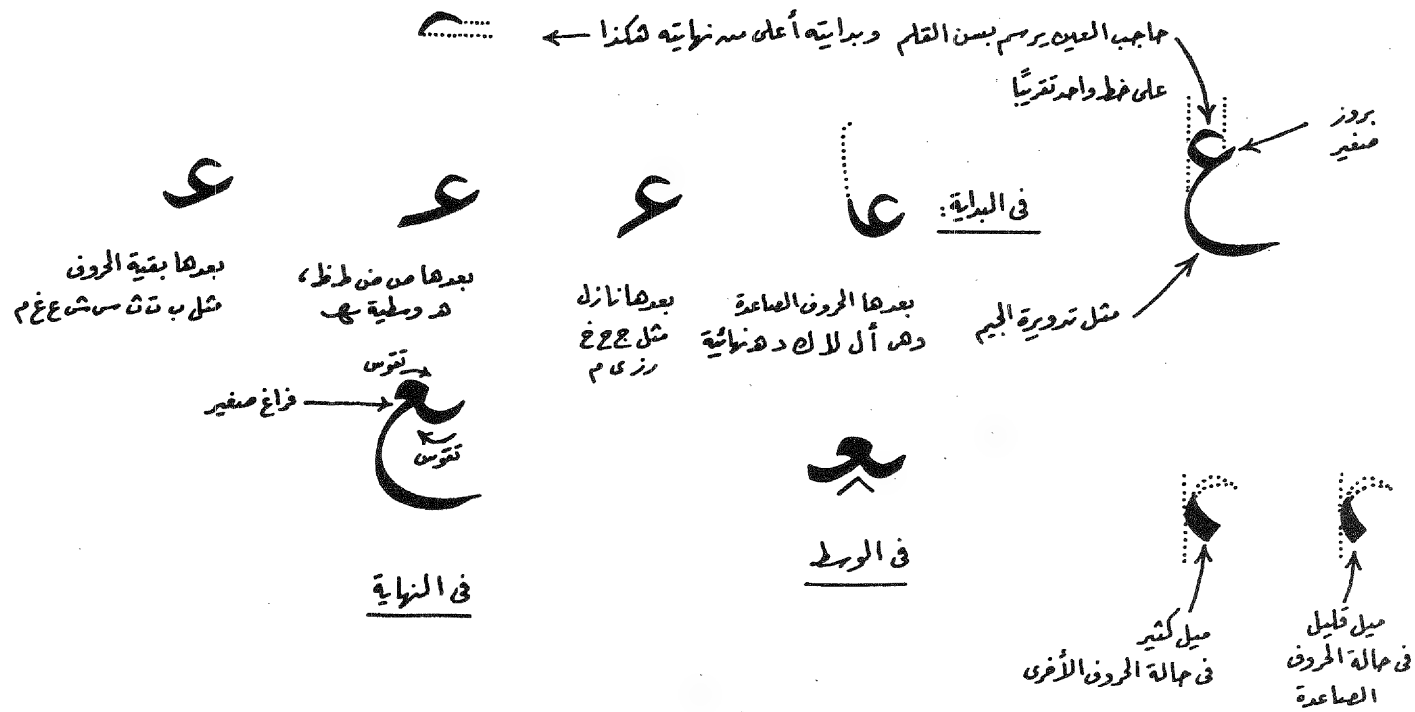 حاجب العين يرسم بسن القلم وبدايته أعلى من نهايته هكذا ←
على خط واحد تقريبًا
بروز
صغير
ع
مثل تدويرة الجيم
فى البداية:
عا
بعدها الحروف الصاعدة
وهى أ ل لا ك د ه نهائية
بعدها نازل
مثل ج ح خ
ر ز ى م
بعدها ص ض ط ظ،
هـ وسطية ـهـ
بعدها بقية الحروف
مثل ب ت ث س ش ع غ م
تقوس
فراغ صغير
ـع
تقوس
فى النهاية
ـعـ
فى الوسط
ميل كثير
فى حالة الحروف الأخرى
ميل قليل
فى حالة الحروف
الصاعدة